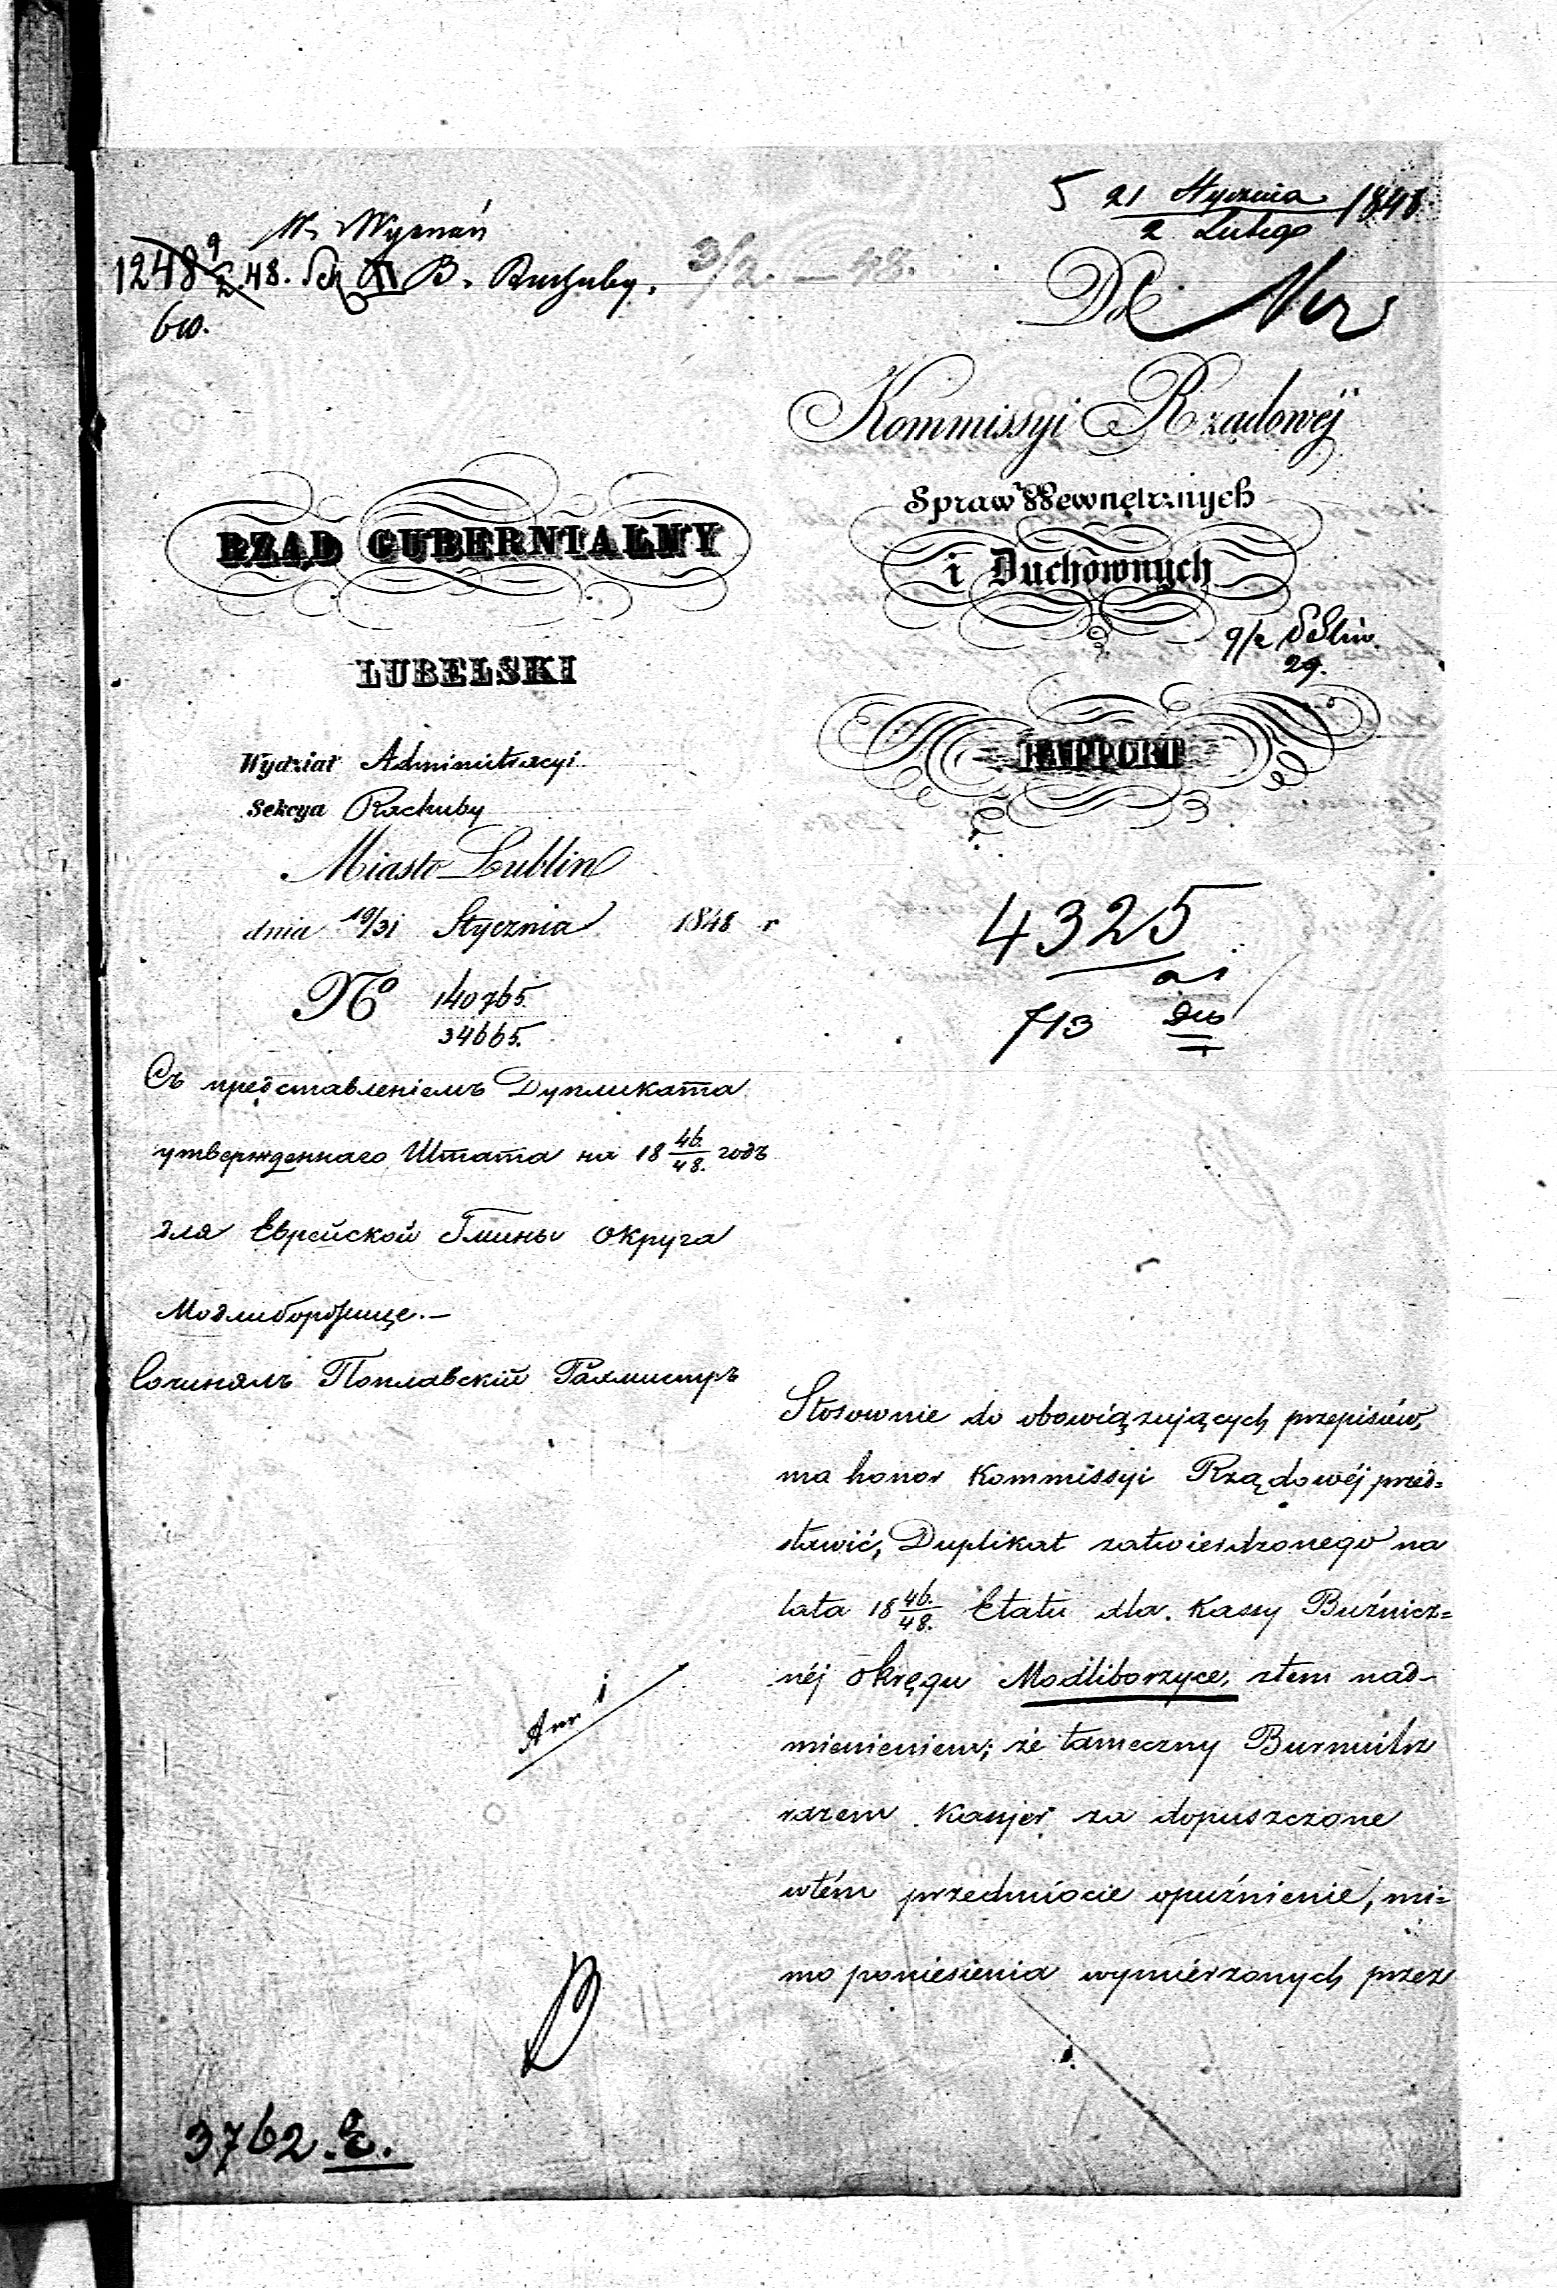 5 21 Stycznia 1848
2 Lutego
W. Wyznań
1248 9/2 48. B. Rachuby.
3/2. — 48.
Do
Kommissyi Rządowéj
Spraw Wewnętrznych
i Duchownych
9/2
29.
RAPPORT
4325
713
RZĄD GUBERNIALNY
LUBELSKI
Wydział Administracyi
Sekcya Rachuby
Miasto Lublin
dnia 19/31 Stycznia 1848 r
No 140765.
34665.
Съ представленіемъ Дупликата
утвержденнаго Штата на 18 46./48. годъ
для Еврейской Гмины Округа
Модлиборжице.—
Сочинялъ Поплавскій
Stosownie do obowiązujących przepisów,
ma honor Kommissyi Rządowéj przed=
stawić, Duplikat zatwierdzonego na
lata 18 46./48. Etatu dla Kassy Buźnicz=
néj Okręgu Modliborzyce, ztem nad-
mienieniem; że tameczny Burmistrz
razem Kassjer za dopuszczone
wtém przedmiocie opuźnienie, mi=
mo poniesienia wymierzonych przez
Ann 1
3762.